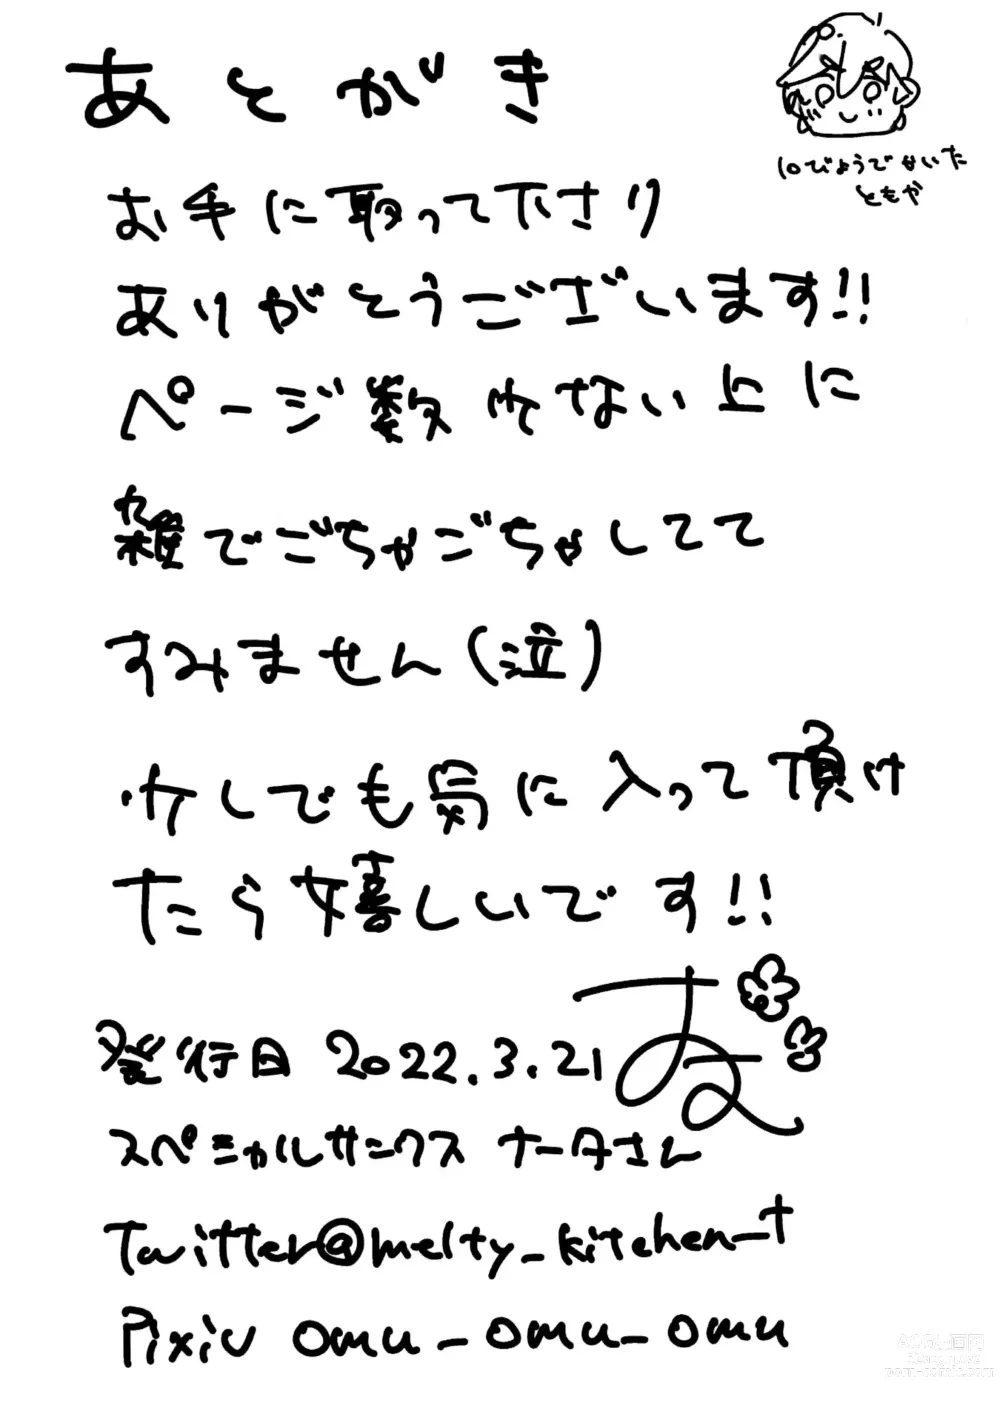 あとがき
10びょうでかいた
ともや
お手に取って下さり
ありがとうございます!!
ページ数少ない上に
雑でごちゃごちゃしてて
すみません(泣)
少しでも気に入って頂け
たら嬉しいです!!
発行日 2022.3.21
スペシャルサンクス ナータさん
Twitter@melty_kitchen_t
Pixiv omu_omu_omu
porn-comic.com